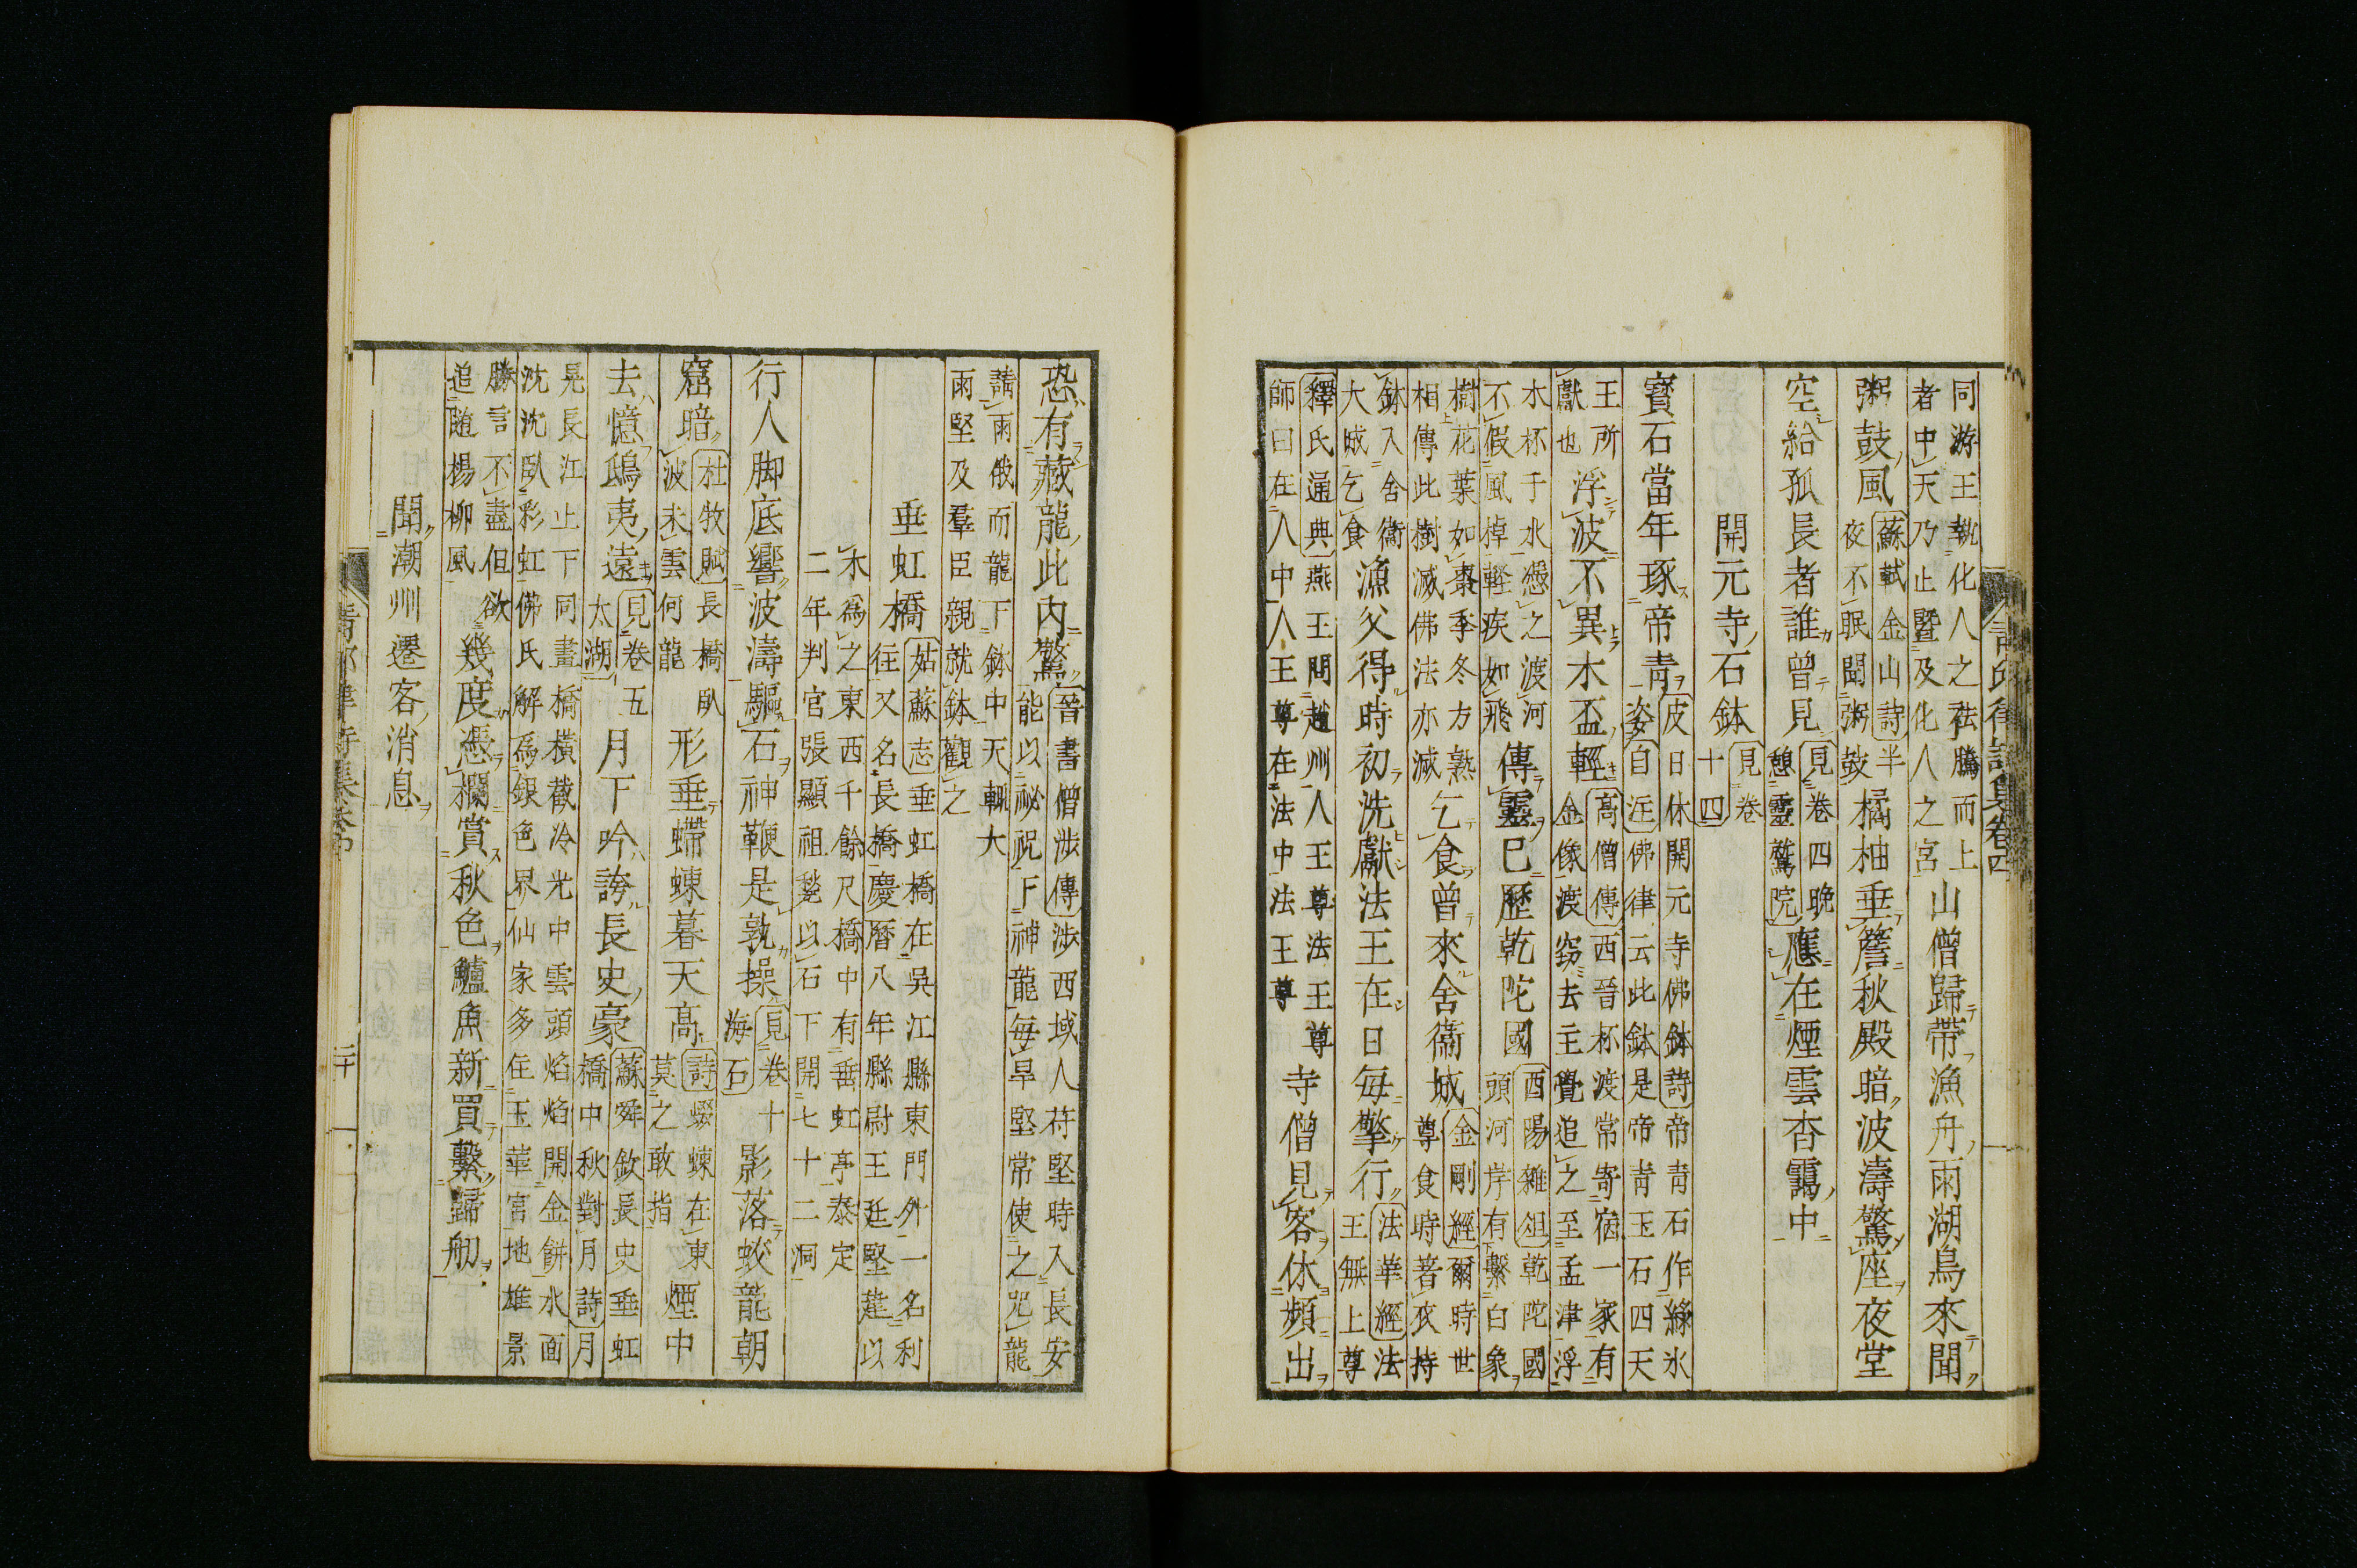 同游王執化人之祛騰而上者中天乃止暨及化人之宮山僧歸帶漁舟雨湖鳥來聞
粥鼓風蘇軾金山詩半夜不眠聞粥鼓橘柚垂簷秋殿暗波濤驚座夜堂
空給孤長者誰曾見見卷四晚憩靈鷲院應在煙雲杳靄中
開元寺石鉢見卷十四
寶石當年琢帝靑皮日休開元寺佛鉢詩帝靑石作綠氷姿自注佛律云此鉢是帝靑玉石四天
王所獻也浮波不異木盃輕高僧傳西晉杯渡常寄宿一家有金像渡竊去主覺追之至孟津浮
木杯于水憑之渡河不假風棹軽疾如飛傳靈巳歷乾陀國酉陽雜俎乾陀國頭河岸有繫白象
樹花葉如棗季冬方熟相傳此樹滅佛法亦滅乞食曾來舍衞城金剛經爾時世尊食時著衣持
鉢入舍衞大城乞食漁父得時初洗獻法王在日每擎行法華經法王無上尊
釋氏通典燕王問趙州人王尊法王尊師曰在人中人王尊在法中法王尊寺僧見客休頻出
恐有藏龍此內驚晉書僧涉傳涉西域人苻堅時入長安能以祕祝下神龍每旱堅常使之咒龍
請雨俄而龍下鉢中天輒大雨堅及羣臣親就鉢觀之
垂虹橋姑蘇志垂虹橋在吳江縣東門外一名利往又名長橋慶曆八年縣尉王廷堅建以
木爲之東西千餘尺橋中有垂虹亭泰定二年判官張顯祖甃以石下開七十二洞
行人脚底響波濤驅石神鞭是孰操見卷十海石影落蛟龍朝
窟暗杜牧賦長橋臥波未雲何龍形垂螮蝀暮天高詩蝃蝀在東莫之敢指煙中
去憶鴟夷遠見卷五太湖月下吟誇長史豪蘇舜欽長史垂虹橋中秋對月詩月
晃長江上下同畫橋橫截冷光中雲頭焰焰開金餅水面沈沈臥彩虹佛氏解爲銀色界仙家多住玉華宮地雄景
勝言不盡但欲追隨楊柳風幾度憑欄賞秋色鱸魚新買繫歸舠
聞潮州遷客消息
二十